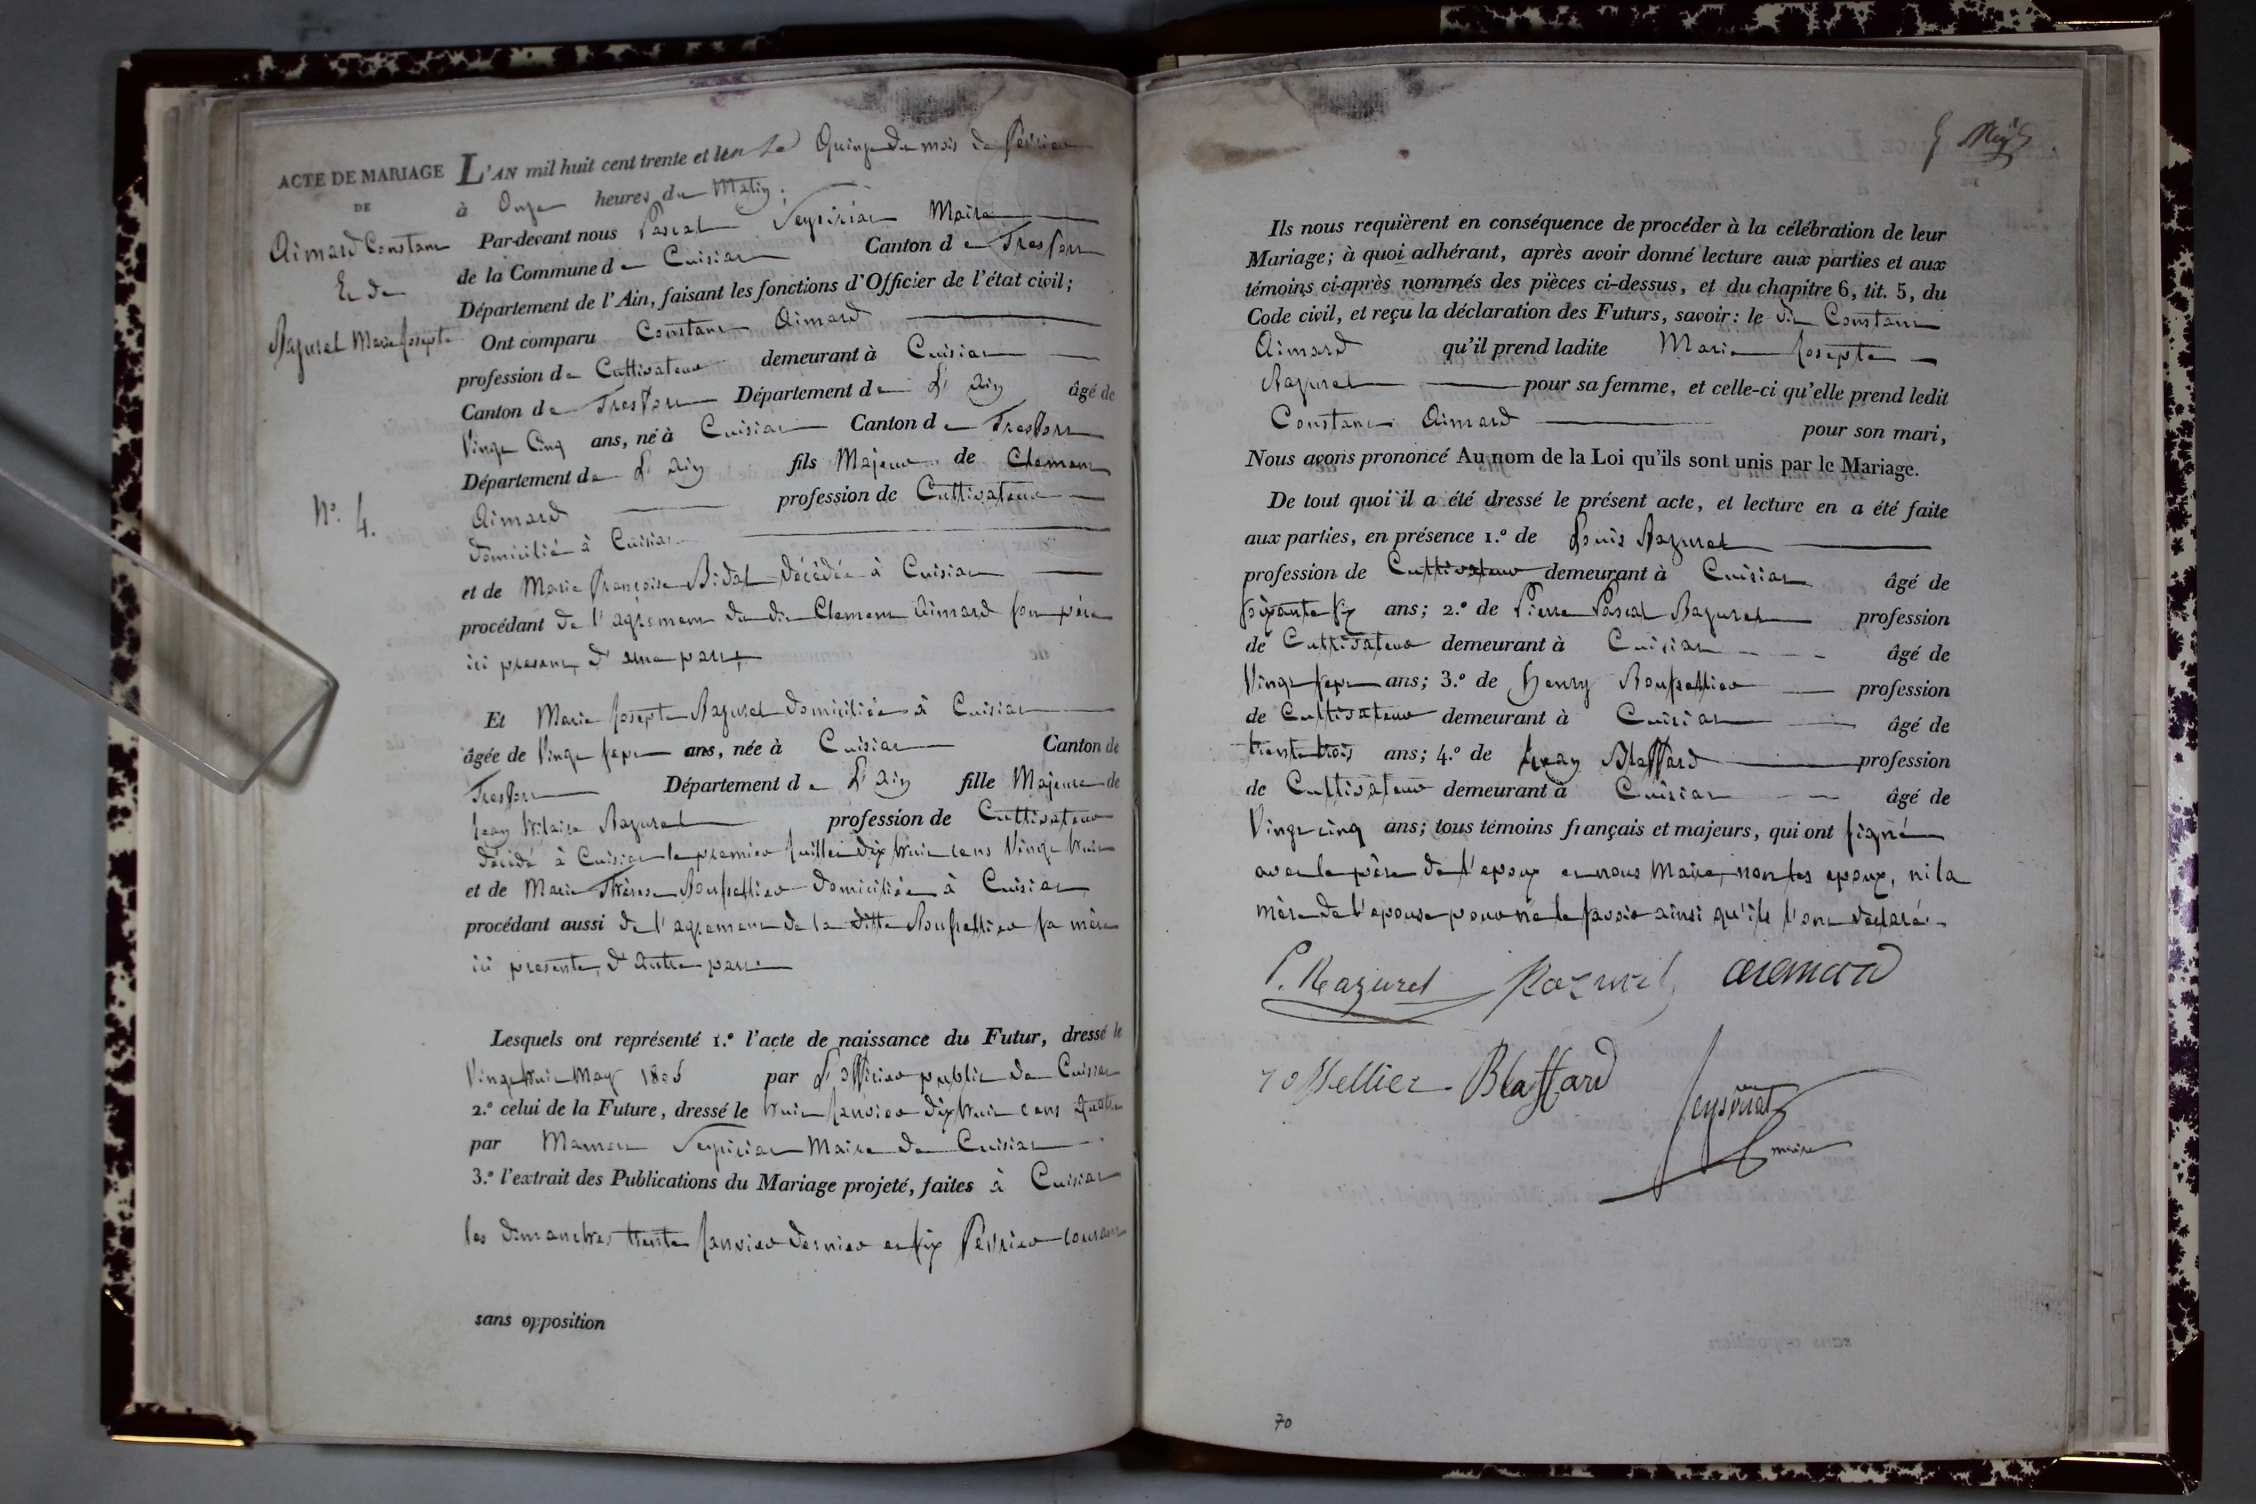 ACTE DE MARIAGE
DE
Aimard Constant
Et de
Razurel Marie Josepte
N.º 4.
L'AN mil huit cent trente et un le Quinze du mois de Février
à Onze heures du Matin.
Par-devant nous Pascal Seyririat Maire
de la Commune de Cuisiat Canton de Treffort
Département de l'Ain, faisant les fonctions d'Officier de l'état civil;
Ont comparu Constant Aimard
profession de Cultivateur demeurant à Cuisiat
Canton de Treffort Département de L'Ain âgé de
Vingt Cinq ans, né à Cuisiat Canton de Treffort
Département de L'Ain fils Majeur de Clement
Aimard profession de Cultivateur
domicilié à Cuisiat
et de Marie Françoise Bidat décédée à Cuisiat
procédant de l'agrement du dit Clement Aimard son père
ici present, d'une part,
Et Marie Josepte Razurel domiciliée à Cuisiat
âgée de Vingt sept ans, née à Cuisiat Canton de
Treffort Département de L'Ain fille Majeure de
Jean hilaire Razurel profession de Cultivateur
décédé à Cuisiat le premier Juillet dix huit cent Vingt huit
et de Marie Thérèse Roussellier domiciliée à Cuisiat
procédant aussi de l'agrement de la ditte Roussellier sa mère
ici presente, d'autre part
Lesquels ont représenté 1.º l'acte de naissance du Futur, dressé le
Vingt huit May 1805 par L'officier public de Cuisiat
2.º celui de la Future, dressé le huit Janvier dix huit cent quatre
par Seyririat Maire de Cuisiat
3.º l'extrait des Publications du Mariage projeté, faites à Cuisiat
les dimanches trente Janvier dernier et six Février courant
sans opposition
Ils nous requièrent en conséquence de procéder à la célébration de leur
Mariage; à quoi adhérant, après avoir donné lecture aux parties et aux
témoins ci-après nommés des pièces ci-dessus, et du chapitre 6, tit. 5, du
Code civil, et reçu la déclaration des Futurs, savoir: le dit Constant
Aimard qu'il prend ladite Marie Josepte
Razurel pour sa femme, et celle-ci qu'elle prend ledit
Constant Aimard pour son mari,
Nous avons prononcé Au nom de la Loi qu'ils sont unis par le Mariage.
De tout quoi il a été dressé le présent acte, et lecture en a été faite
aux parties, en présence 1.º de Louis Razurel
profession de Cultivateur demeurant à Cuisiat âgé de
soixante six ans; 2.º de Pierre Pascal Razurel profession
de Cultivateur demeurant à Cuisiat âgé de
Vingt sept ans; 3.º de henry Roussellier profession
de Cultivateur demeurant à Cuisiat âgé de
trente trois ans; 4.º de Jean Blaffard profession
de Cultivateur demeurant à Cuisiat âgé de
Vingt cinq ans; tous témoins français et majeurs, qui ont signé
avec le père de l'epoux et nous Maire, non les epoux, ni la
mère de l'epouse pour ne le savoir ainsi qu'ils l'ont déclaré.
P. Razurel Razurel
rossellier Blaffard
maire
70